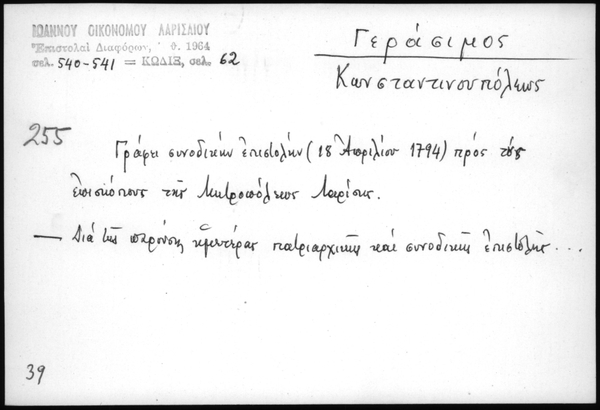 ΙΩΑΝΝΟΥ ΟΙΚΟΝΟΜΟΥ ΛΑΡΙΣΑΙΟΥ
Ἐπιστολαὶ Διαφόρων, 1964
σελ. 540-541 = ΚΩΔΙΞ, σελ. 62
Γεράσιμος
Κωνσταντινουπόλεως
255
Γράφει συνοδικὴν ἐπιστολὴν (18 Ἀπριλίου 1794) πρὸς τοὺς
ἐπισκόπους τῆς Μητροπόλεως Λαρίσης.
— Διὰ τῆς παρούσης ἡμετέρας πατριαρχικῆς καὶ συνοδικῆς ἐπιστολῆς...
39